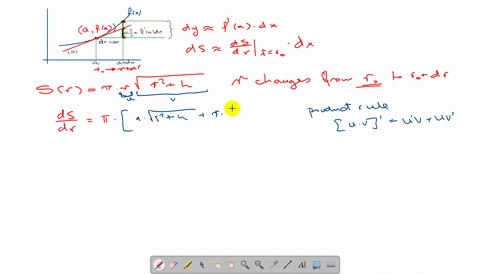 f(x)
(a, f(a))
dy ≈ f'(a) · dx
dS ≈ dS/dr |r=r₀ · dx
a
r₀ → r₀+dr
S(r) = π · r √(r² + h)
u v
r changes from r₀ to r₀ + dr
dS/dr = π · [ 1 · √(r² + h) + r ·
product rule
[u · v]' = u'v + uv'